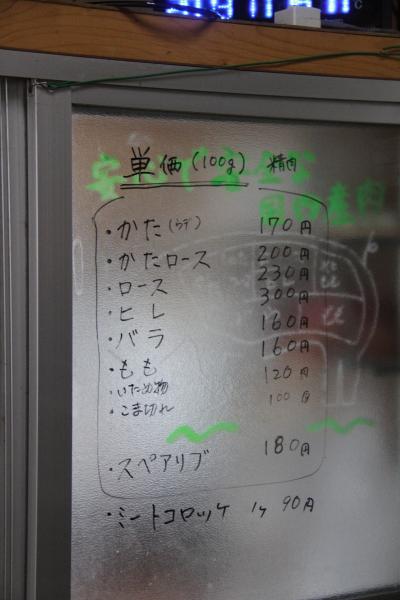 単価(100g) 精肉
・かた(ウデ) 170円
・かたロース 200円
・ロース 230円
・ヒレ 300円
・バラ 160円
・もも 160円
・いため物 120円
・こま切れ 100円
・スペアリブ 180円
・ミートコロッケ 1ケ 90円